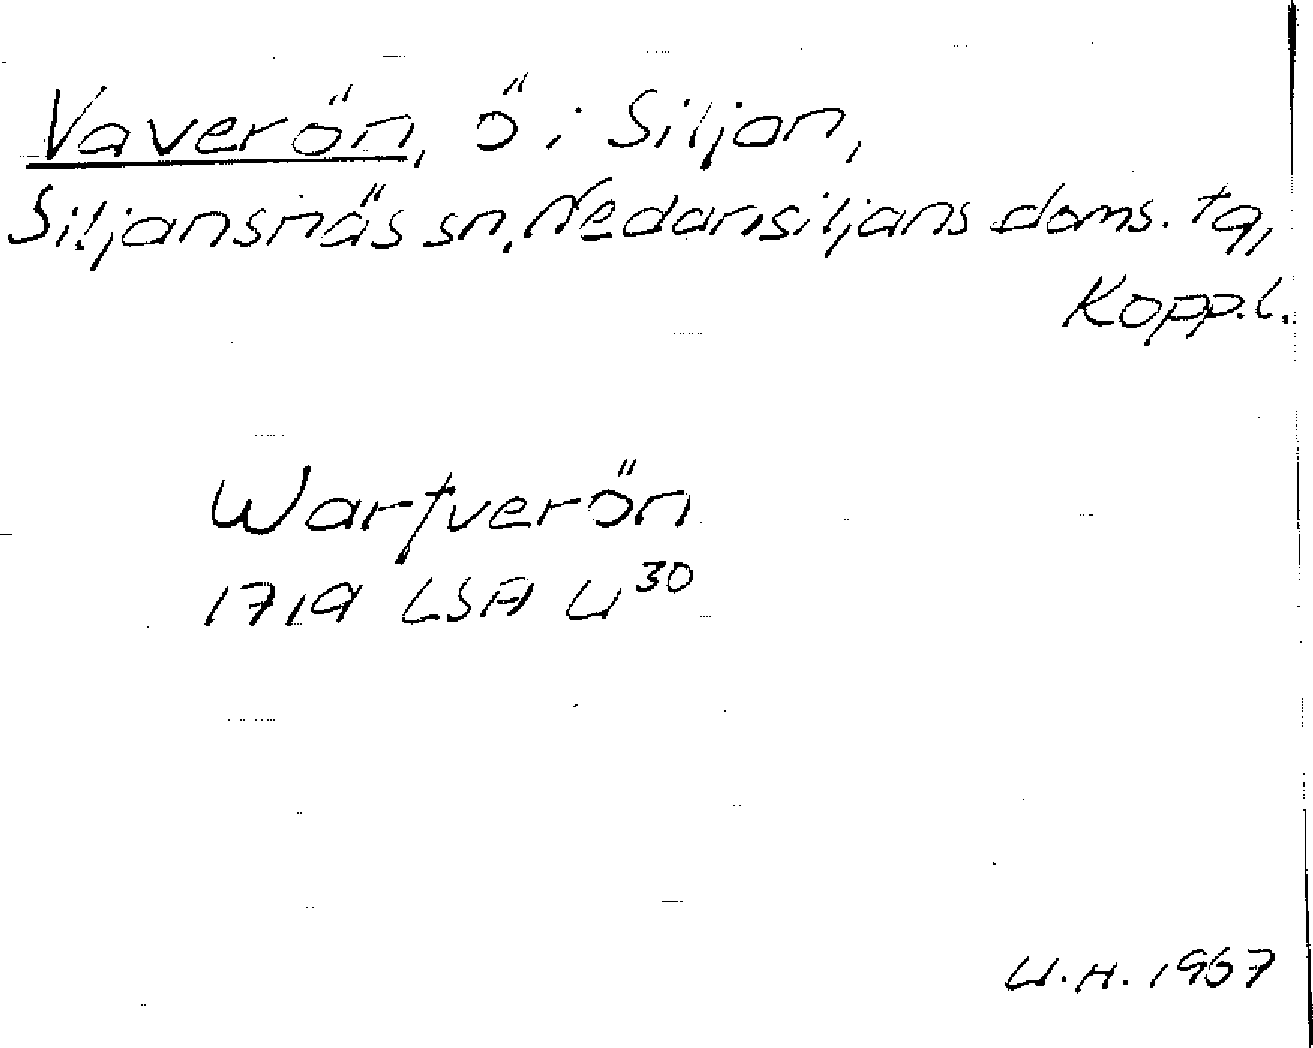 Vaverön, ö i Siljan,
Siljansnäs sn, Nedansiljans doms. tg,
Kopp.l.
Warfverön
1719 LSA U³⁰
U.H. 1967